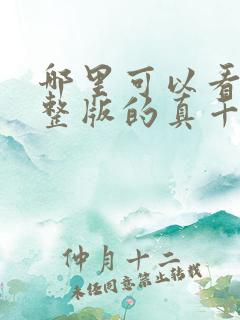 哪里可以看
整版的真千
仲月十二
未经同意禁止转载